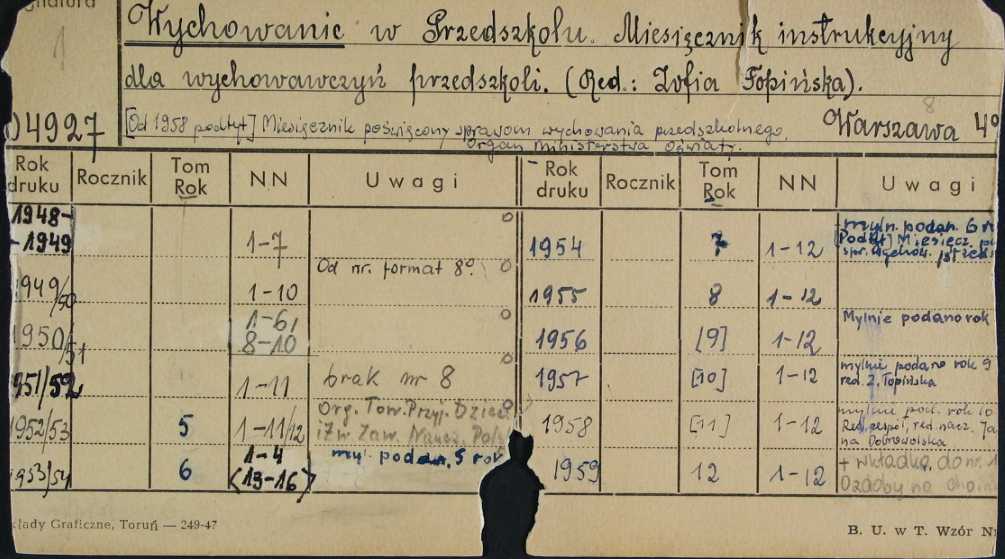 1
Wychowanie w Przedszkolu. Miesięcznik instrukcyjny
dla wychowawczyń przedszkoli. (Red.: Zofia Topińska).
8
04927 [Od 1958 podtyt] Miesięcznik poświęcony sprawom wychowania przedszkolnego. Warszawa 4°
Organ Ministerstwa Oświaty.
Rok druku Rocznik Tom Rok NN Uwagi Rok druku Rocznik Tom Rok NN Uwagi
1948-
-1949 1-7
1949/50 1-10 Od nr. format 8°.
1950/51 1-6, 8-10
951/52 1-11 brak nr 8
1952/53 5 1-11/12 Org. Tow. Przyj. Dzieci
i Zw. Zaw. Naucz. Pol
1953/54 6 1-4 (13-16) myl. podan. 5 rok
1954 7 1-12 myln. podan. 6
[Podtyt] Miesięcz.
spr. wychow.
1955 8 1-12
1956 [9] 1-12 Mylnie podano rok
1957 [10] 1-12 mylnie podano rok 9
red. Z. Topińska
1958 [11] 1-12 mylnie pod. rok 10
Red. zespół, red. nacz. Ja
na Dobrowolska
1959 12 1-12 + wkładka do nr. 1
Ozdoby na choin
łady Graficzne, Toruń — 249-47
B. U. w T. Wzór N